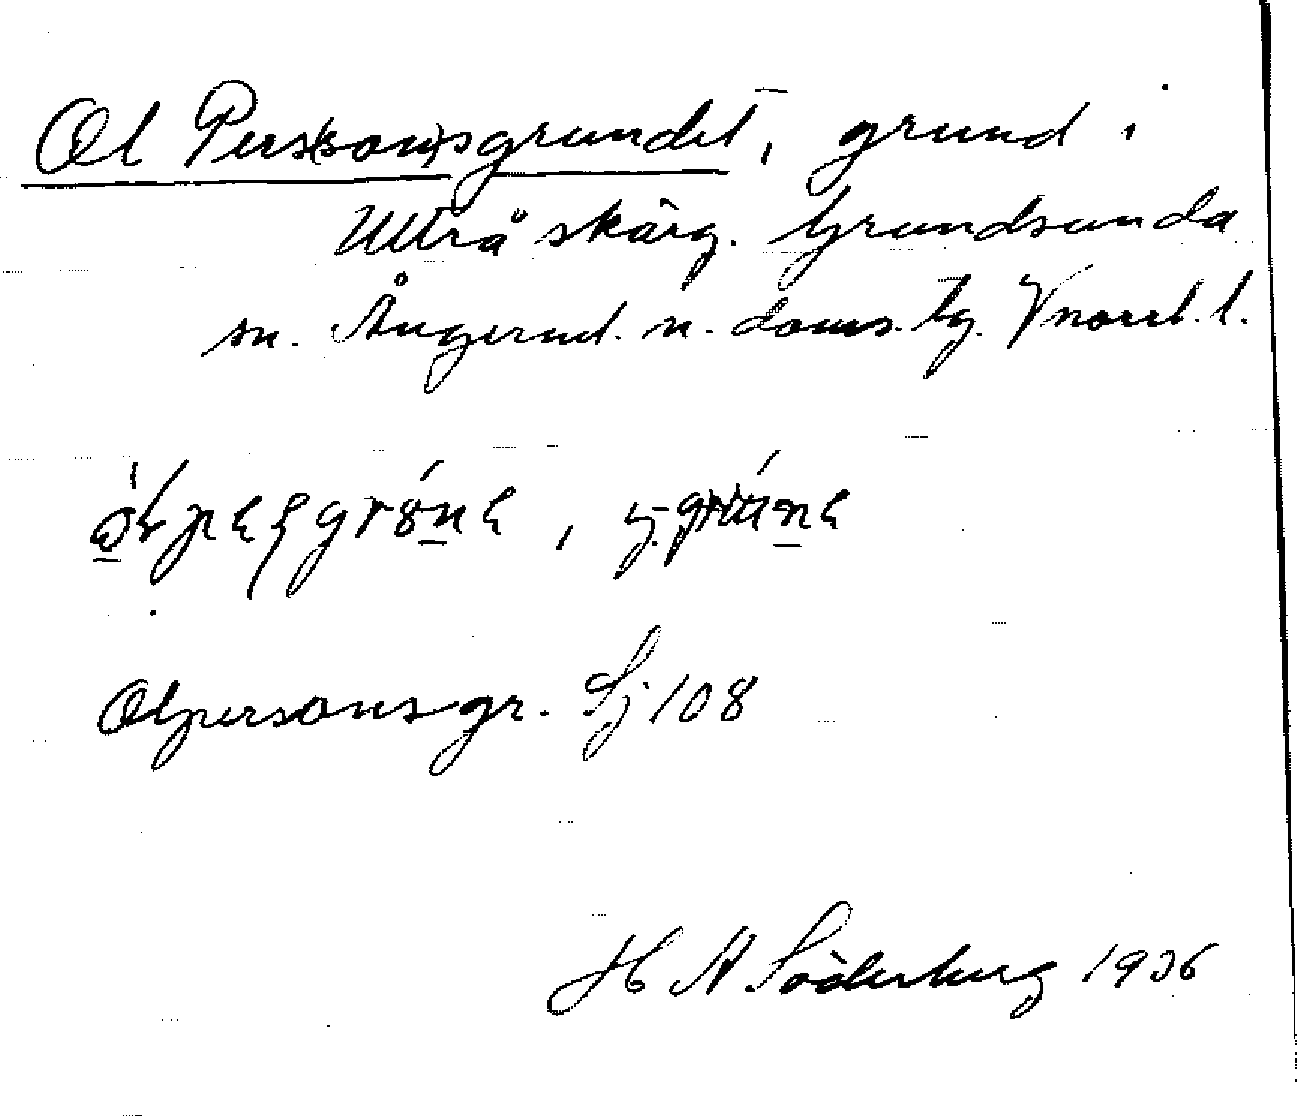 Ol Pers(son)sgrundet, grund i
Ullrå skärg. Grundsunda
sn. Ångerml. n. doms. lg. Vnorrl. l.
Olpersonsgr. Sj 108
H A Söderberg 1936